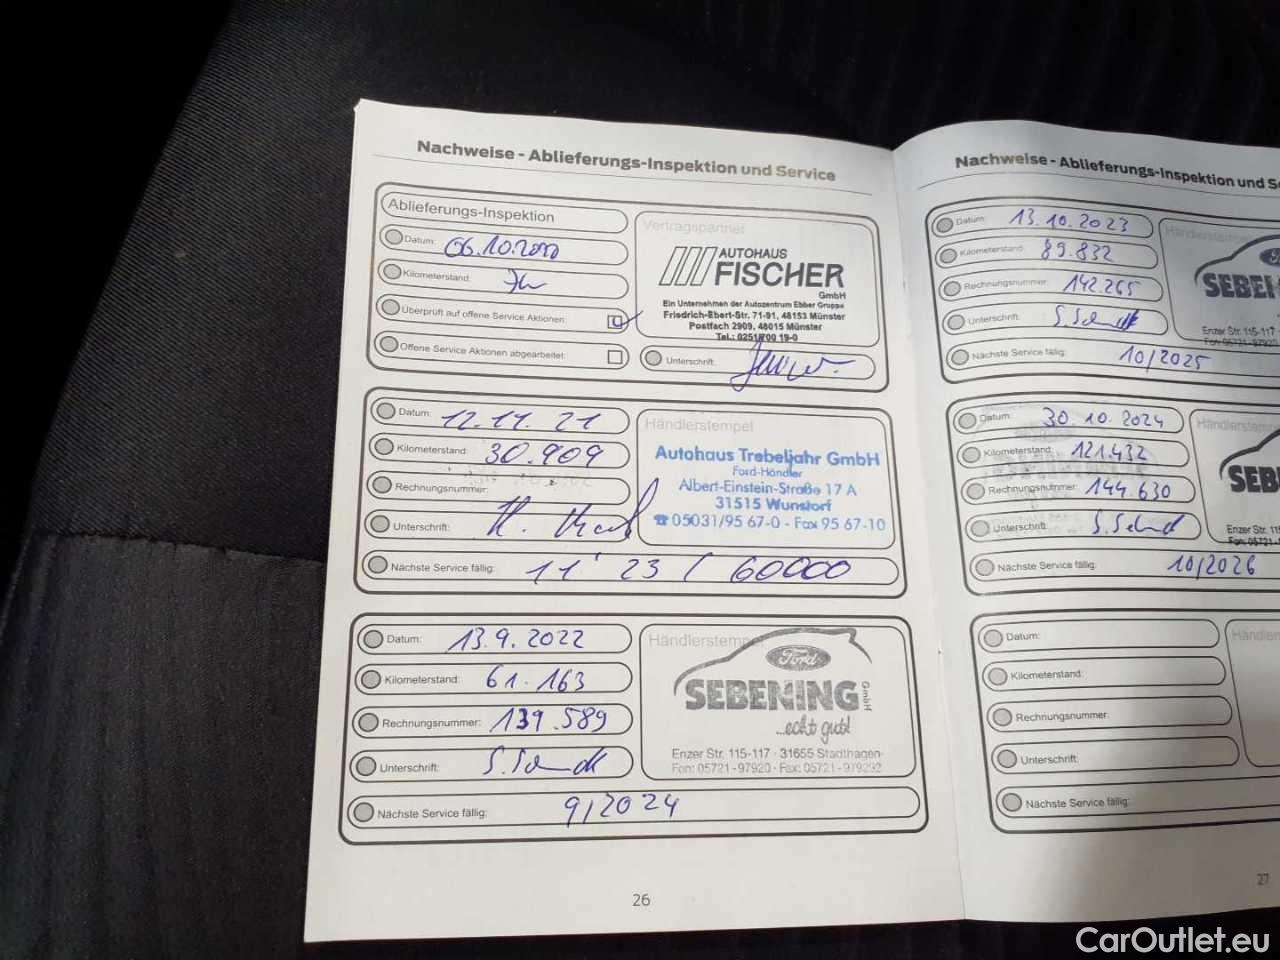 Nachweise - Ablieferungs-Inspektion und Service
Ablieferungs-Inspektion
Datum: 06.10.2020
Kilometerstand:
Überprüft auf offene Service Aktionen:
Offene Service Aktionen abgearbeitet:
Vertragspartner
AUTOHAUS
FISCHER
GmbH
Ein Unternehmen der Autozentrum Ebber Gruppe
Friedrich-Ebert-Str. 71-91, 48153 Münster
Postfach 2909, 48015 Münster
Tel.: 0251/700 19-0
Unterschrift:
Datum: 12.11.21
Kilometerstand: 30.909
Rechnungsnummer:
Unterschrift:
Nächste Service fällig: 11 ' 23 / 60000
Händlerstempel
Autohaus Trebeljahr GmbH
Ford-Händler
Albert-Einstein-Straße 17 A
31515 Wunstorf
☎ 05031/95 67-0 - Fax 95 67-10
Datum: 13.9.2022
Kilometerstand: 61.163
Rechnungsnummer: 139.589
Unterschrift:
Nächste Service fällig: 9/2024
Händlerstempel
Ford
SEBENING GmbH
...echt gut!
Enzer Str. 115-117 · 31655 Stadthagen
Fon: 05721-97920 · Fax: 05721-979292
26
Nachweise - Ablieferungs-Inspektion und
Datum: 13.10.2023
Kilometerstand: 89.832
Rechnungsnummer: 142.265
Unterschrift:
Nächste Service fällig: 10/2025
Enzer Str. 115-117
Fon: 05721-97920
Datum: 30.10.2024
Kilometerstand: 121.432
Rechnungsnummer: 144.630
Unterschrift:
Nächste Service fällig: 10/2026
Händlerstempel
SEB
Enzer Str. 11
Fon: 05721-
Datum:
Kilometerstand:
Rechnungsnummer:
Unterschrift:
Nächste Service fällig:
27
CarOutlet.eu